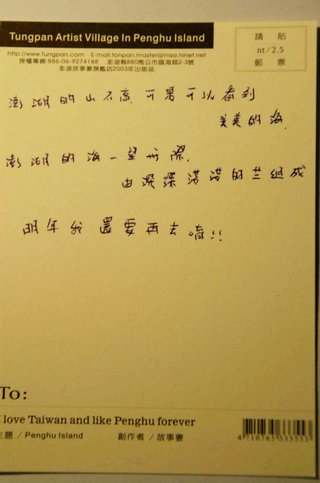 Tungpan Artist Village In Penghu Island
http://www.Tungpan.com E-mail:tonpan.master@msa.hinet.net
授權專線:886-06-9274188 澎湖縣880馬公市臨海路2-3號
澎湖故事妻旗艦店2003年出版品
請 貼
nt/2.5
郵 票
澎湖的山不高,可是可以看到
美美的海,
澎湖的海一望無際,
由深深淺淺的兰組成
明年我還要再去唷!!
To:
love Taiwan and like Penghu forever
主題 / Penghu Island 創作者 / 故事妻
4 710765 333333